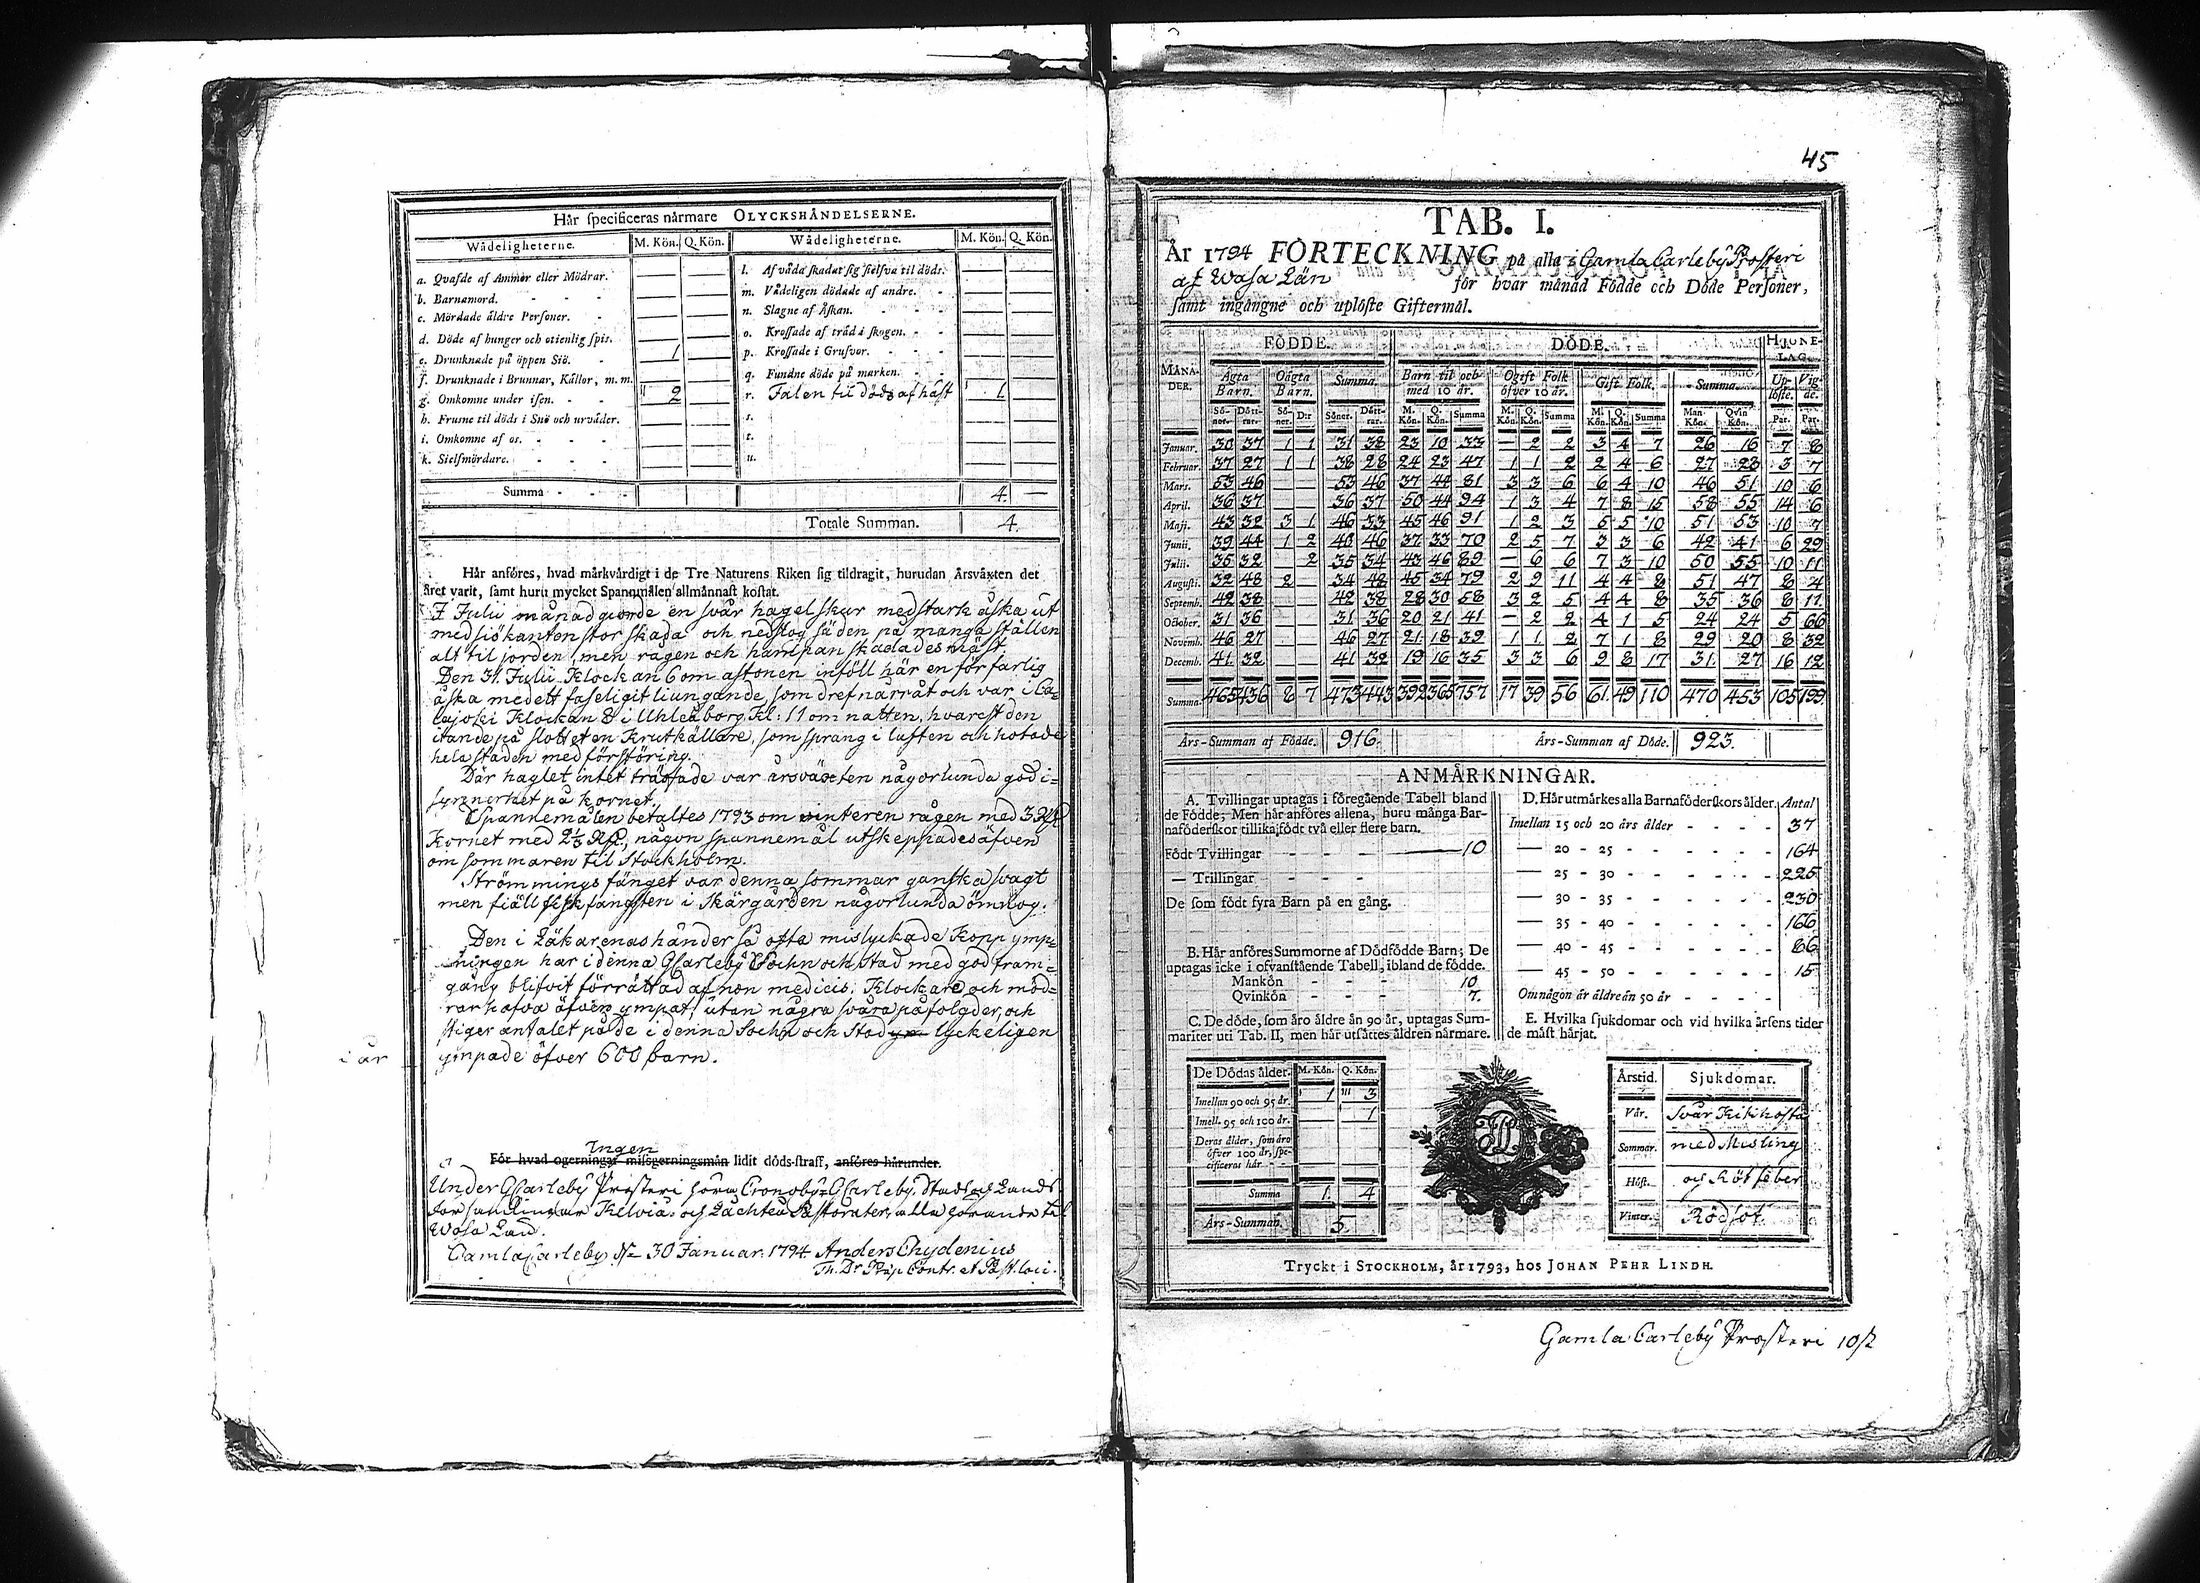 Här specificeras närmare OLYCKSHÄNDELSERNE.
Wådeligheterne. M. Kön. Q. Kön. Wådeligheterne. M. Kön. Q. Kön.
a. Qvafde af Ammor eller Mödrar. l. Af våda skadat sig sielfva til döds.
b. Barnamord. m. Vådeligen dödade af andre.
c. Mördade äldre Personer. n. Slagne af Åskan.
d. Döde af hunger och otienlig spis. o. Krossade af träd i skogen.
e. Drunknade på öppen Siö. 1 p. Krossade i Grufvor.
f. Drunknade i Brunnar, Källor, m. m. q. Fundne döde på marken.
g. Omkomne under isen. 2 r. Falen til döds af häst 1
h. Frusne til döds i Snö och urväder. s.
i. Omkomne af os. t.
k. Sielfmördare. u.
Summa 4. —
Totale Summan. 4.
Här anföres, hvad märkvärdigt i de Tre Naturens Riken sig tildragit, hurudan Årsväxten det
året varit, samt huru mycket Spanmålen allmännast kostat.
I Julii månad giorde en svår hagel skur med stark åska ut
med siökanten stor skada och nedslog säden på många ställen
alt til jorden, men rågen och hampan skadades mäst.
Den 31. Julii Klockan 6 om aftonen inföll här en förfarlig
åska med ett faseligit liungande, som dref närråt och var i Ca=
lajoki Klockan 8 i Uhleåborg Kl: 11 om natten, hvarest den
itände på slottet en Krutkällare, som sprang i luften och hotade
hela staden med förstöring.
Där haglet intet träffade var årsväxten någorlunda god i=
synnerhet på kornet.
Spannemålen betaltes 1793 om winteren rågen med 3 R
Kornet med 2 1/3 R, någon spannemål utskeppades äfven
om sommaren til Stockholm.
Strömmings fånget var denna sommar ganska svagt
men fiäll fisk fångsten i Skärgården någorlunda ömnog.
Den i Läkarenas händer så ofta mislyckade Kopp ymp=
ningen har i denna GCarleby Sochn och Stad med god fram=
gång blifvit förrättad af non medicis. Klockare och möd=
rar hafva äfven ympat utan några svåra påfolgder, och
stiger antalet på de i denna Sochn och Stad lyckeligen
i år ympade öfver 600 barn.
Ingen
För hvad ogerningar missgerningsmän lidit döds-straff, anföres härunder.
Under GCarleby Prosteri höra Cronoby, GCarleby Stads och Lands
församlingar Kelviå och Lächteå Pastorater, alla hörande til
Wasa Län.
GamlaCarleby d. 30 Januar. 1794 Anders Chydenius
Th. Dr Præp. Contr. et Past. loci.
45
TAB. I.
År 1794 FÖRTECKNING på alla i Gamla Carleby Prosteri
af Wasa Län för hvar månad Födde och Döde Personer,
samt ingångne och uplöste Giftermål.
FÖDDE. DÖDE. HJONE-LAG.
MÅNADER. Ägta Barn. Oägta Barn. Summa. Barn til och med 10 år. Ogift Folk öfver 10 år. Gift Folk. Summa. Uplöste. Vigde.
Söner. Döttrar. Söner. D:r Söner. Döttrar. M. Kön. Q. Kön. Summa M. Kön. Q. Kön. Summa M. Kön. Q. Kön. Summa Man Kön. Qvin Kön. Par. Par.
Januar. 30 37 1 1 31 38 23 10 33 — 2 2 3 4 7 26 16 7 8
Februar. 37 27 1 1 38 28 24 23 47 1 1 2 2 4 6 27 28 3 7
Mars. 53 46 — — 53 46 37 44 81 3 3 6 6 4 10 46 51 10 6
April. 36 37 — — 36 37 50 44 94 1 3 4 7 8 15 58 55 14 6
Maji. 43 32 3 1 46 33 45 46 91 1 2 3 5 5 10 51 53 10 7
Junii. 39 44 1 2 40 46 37 33 70 2 5 7 3 3 6 42 41 6 29
Julii. 35 32 2 35 34 43 46 89 — 6 6 7 3 10 50 55 10 11
Augusti. 32 48 2 — 34 48 45 34 79 2 9 11 4 4 8 51 47 8 4
Septemb. 42 38 — — 42 38 28 30 58 3 2 5 4 4 8 35 36 8 11
October. 31 36 — — 31 36 20 21 41 — 2 2 4 1 5 24 24 5 66
Novemb. 46 27 — — 46 27 21 18 39 1 1 2 7 1 8 29 20 8 32
Decemb. 41 32 — — 41 32 19 16 35 3 3 6 9 8 17 31 27 16 12
Summa 465 436 8 7 473 443 392 365 757 17 39 56 61 49 110 470 453 105 199
Års-Summan af Födde. 916. Års-Summan af Döde. 923.
ANMÄRKNINGAR.
A. Tvillingar uptagas i föregående Tabell bland
de Födde; Men här anföres allena, huru många Bar-
naföderskor tillika födt två eller flere barn.
Födt Tvillingar 10
— Trillingar
De som födt fyra Barn på en gång.
B. Här anföres Summorne af Dödfödde Barn; De
uptagas icke i ofvanstående Tabell, ibland de födde.
Mankön 10
Qvinkön 7.
C. De döde, som äro äldre än 90 år, uptagas Sum-
mariter uti Tab. II, men här utsättes åldren närmare.
D. Här utmärkes alla Barnaföderskors ålder. Antal
Imellan 15 och 20 års ålder 37
— 20 - 25 164
— 25 - 30 225
— 30 - 35 230
— 35 - 40 166
— 40 - 45 66
— 45 - 50 15
Om någon är äldre än 50 år
E. Hvilka sjukdomar och vid hvilka årsens tider
de mäst härjat.
De Dödas ålder. M. Kön. Q. Kön.
Imellan 90 och 95 år. 1 3
Imell. 95 och 100 år. 1
Deras ålder, som äro
öfver 100 år, spe-
cificeras här
Summa 1. 4
Års-Summan. 5.
Årstid. Sjukdomar.
Vår. Svår Kikhosta
Sommar. med Misling
Höst. och Rötfeber
Vinter. Rödsot
Tryckt i STOCKHOLM, år 1793, hos JOHAN PEHR LINDH.
Gamla Carleby Prosteri 10/2